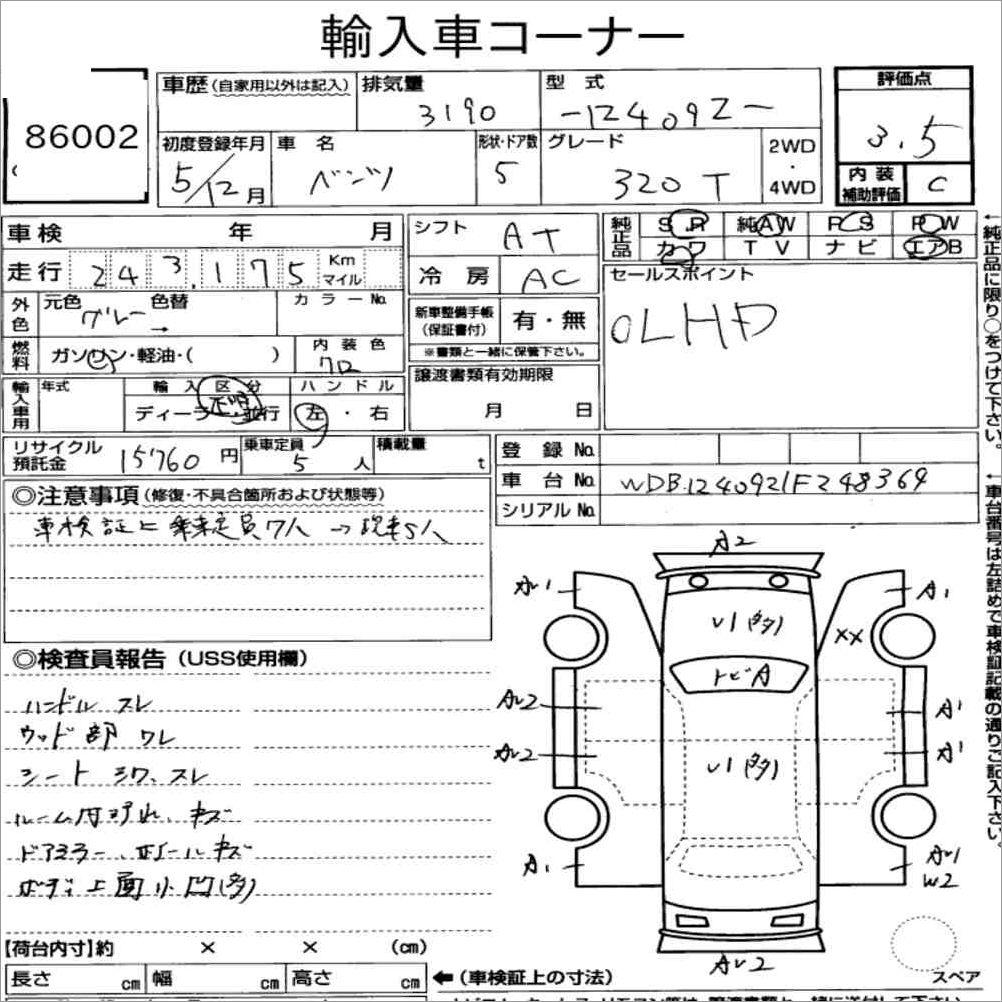 輸入車コーナー
86002
車歴 (自家用以外は記入) 排気量 3190
型式 -124092-
評価点 3.5
初度登録年月 5/12月
車名 ベンツ
形状・ドア数 5
グレード 320T
2WD・4WD
内装補助評価 C
車検 年 月
シフト AT
純正品 S.R 純AW PS PW
カワ TV ナビ エアB
走行 243,175 Km マイル
冷房 AC
セールスポイント
○LHD
外色 元色 グレー → 色替 カラーNo.
新車整備手帳(保証書付) 有・無
※書類と一緒に保管下さい。
燃料 ガソリン・軽油・( )
内装色 クロ
譲渡書類有効期限
月 日
輸入車用 年式 輸入区分 ハンドル
ディーラー・並行 左・右
リサイクル預託金 15760円
乗車定員 5人
積載量 t
登録No.
車台No. WDB1240921F248369
シリアルNo.
◎注意事項 (修復・不具合箇所および状態等)
車検証に乗車定員7人→現車5人
◎検査員報告 (USS使用欄)
ハンドル スレ
ウッド部 ワレ
シート シワ、スレ
ルーム内汚れ、キズ
ドアミラー、ホイールキズ
ボディ上面小凹(多)
A2
AU1
A1
U1(多)
XX
トビA
AU2
A1
AU2
A1
U1(多)
A1
AU1
W2
AU2
スペア
【荷台内寸】約 × × (cm)
長さ cm 幅 cm 高さ cm
←(車検証上の寸法)
←純正品に限り○をつけて下さい。
←車台番号は左詰めで車検証記載の通りご記入下さい。